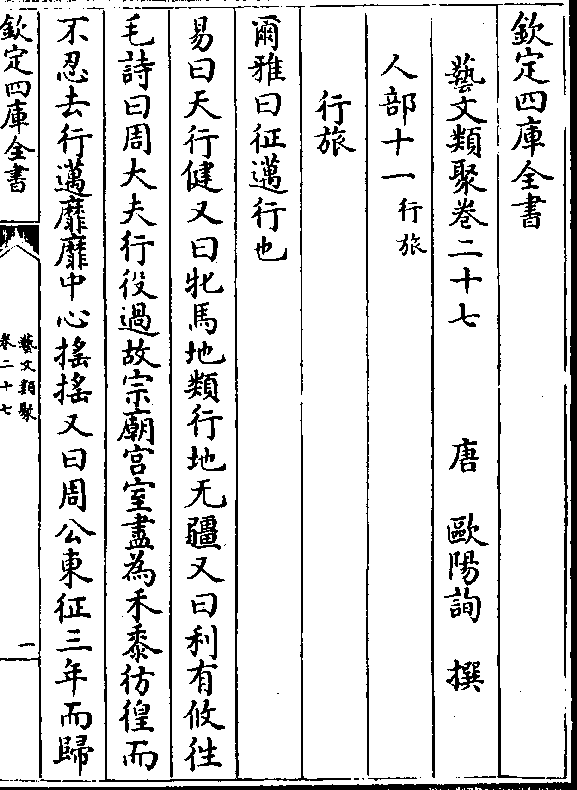 欽定四庫全書
藝文類聚卷二十七 唐 歐陽詢 撰
人部十一 行旅
行旅
爾雅曰征邁行也
易曰天行健又曰牝馬地類行地无疆又曰利有攸往
毛詩曰周大夫行役過故宗廟宫室盡為禾黍彷徨而
不忍去行邁靡靡中心搖搖又曰周公東征三年而歸
欽定四庫全書
藝文類聚
卷二十七
一